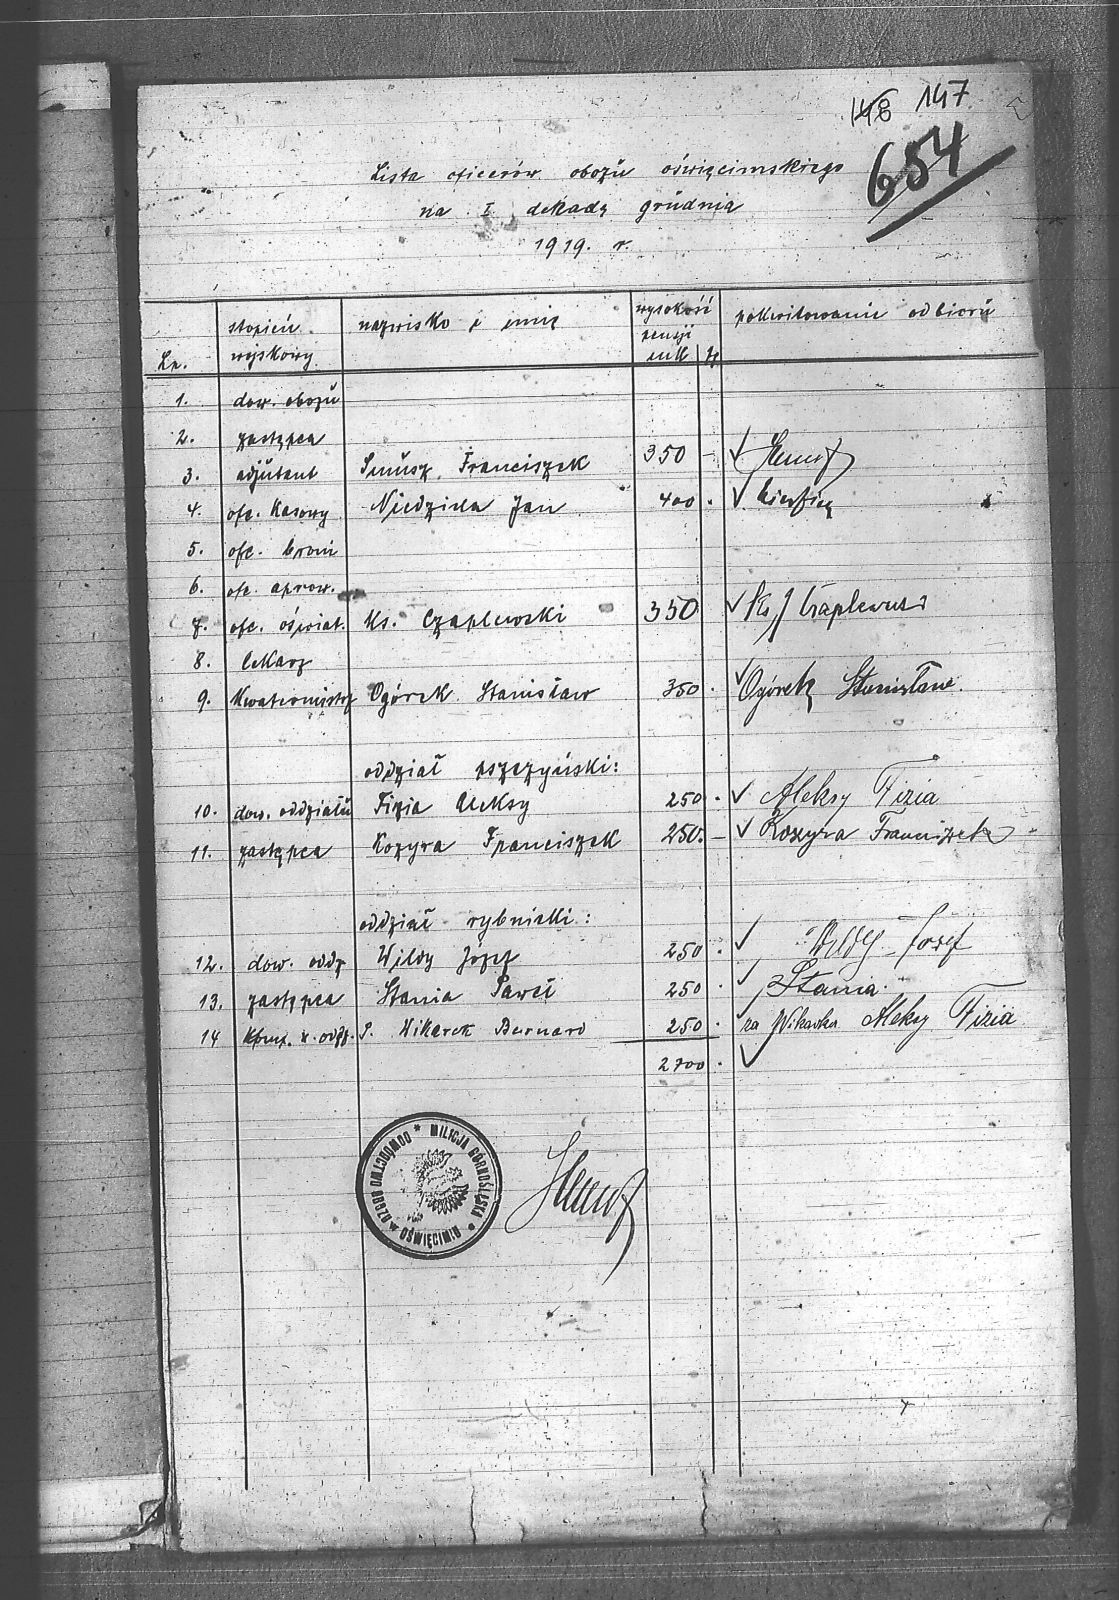 147
654
Lista oficerów obozu oświęcimskiego
na I dekadę grudnia
1919. r.
Lp. stopień wojskowy nazwisko i imię wysokość pensji mk pokwitowanie odbioru
1. dow. obozu
2. zastępca
3. adjutant Franciszek 350 -
4. ofc. kasowy Niedziela Jan 400 .
5. ofc. broni
6. ofc. aprow.
7. ofc. oświat. Ks. Czaplewski 350 Ks J Czaplewski
8. lekarz
9. kwatermistrz Ogórek Stanisław 350 . Ogórek Stanisław.
oddział pszczyński:
10. dow. oddziału Fizia Aleksy 250 . Aleksy Fizia
11. zastępca Kozyra Franciszek 250. - Kozyra Franciszek
oddział rybnicki:
12. dow. oddz Wildy Józef 250 . Wildy Josef
13. zastępca Stania Paweł 250 . Stania.
14 Wikarek Bernard 250 . za Wikarka Aleksy Fizia
2700 .
MILICJA GÓRNOŚLĄSKA * DOWÓDCTWO OBOZU w OŚWIĘCIMIU *